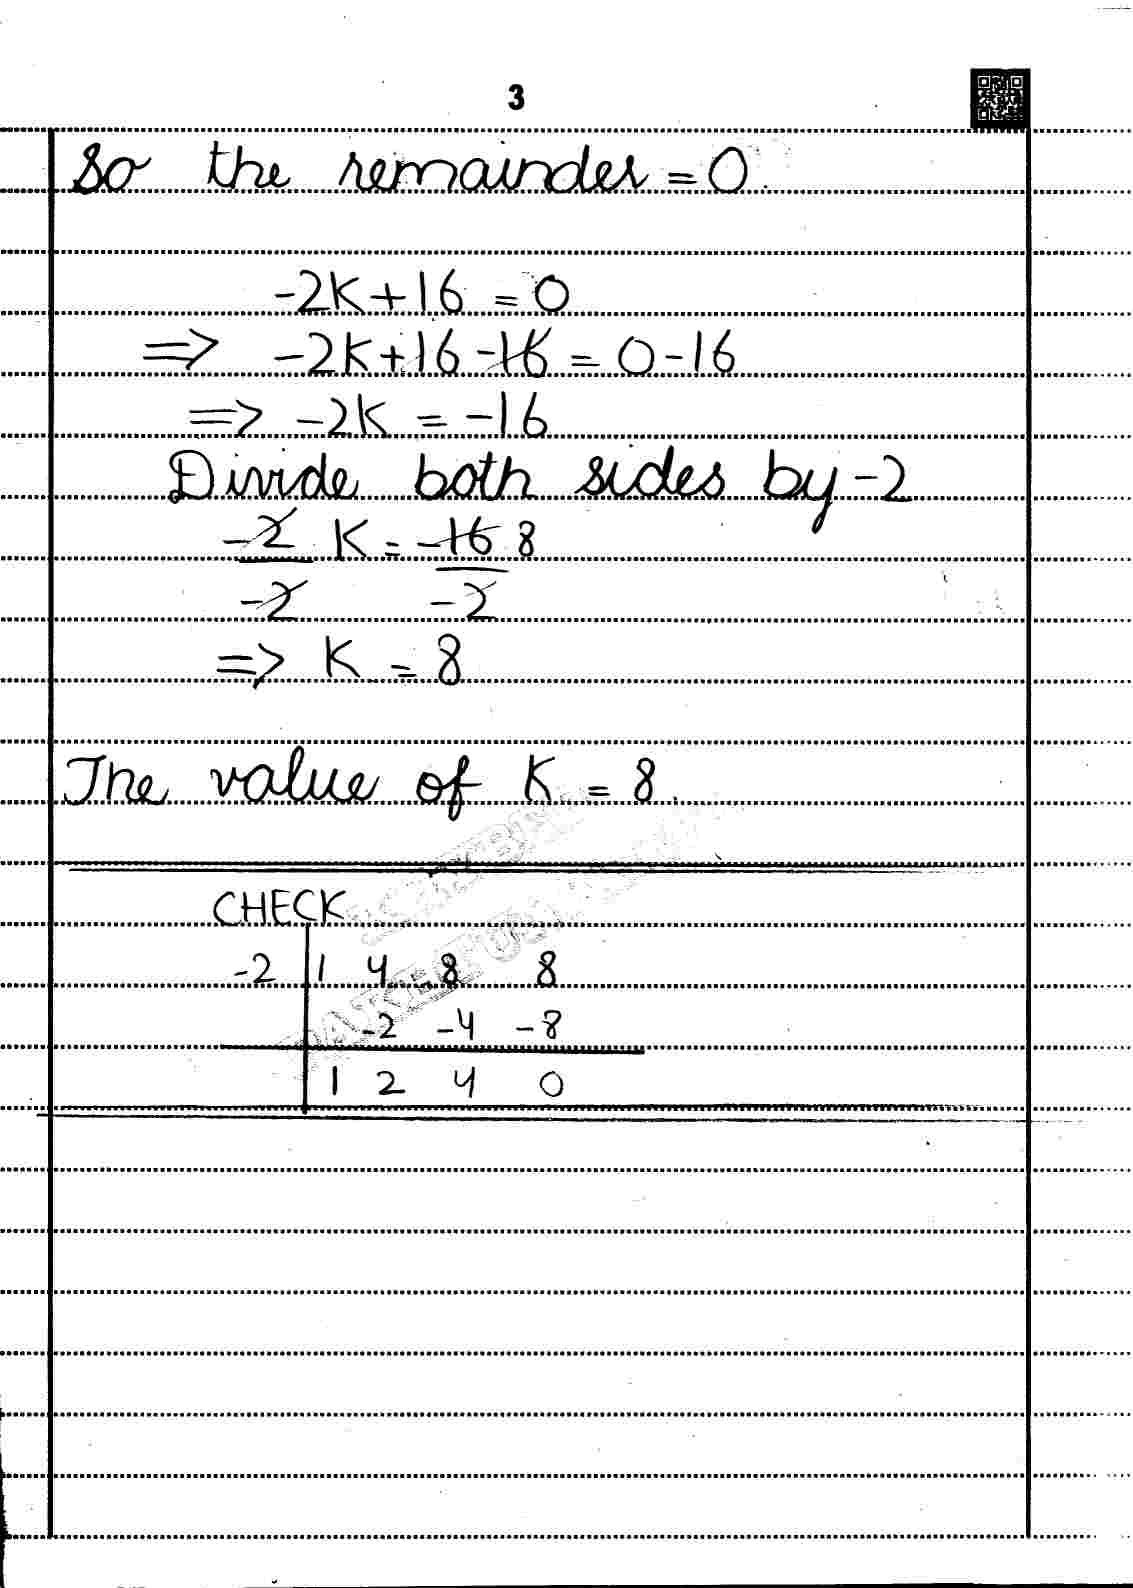 3
So the remainder = 0.
-2K+16 = 0
=> -2K+16-16 = 0-16
=> -2K = -16
Divide both sides by -2
-2 K = -16 8
-2 -2
=> K = 8
The value of K = 8.
CHECK
-2 1 4 8 8
-2 -4 -8
1 2 4 0